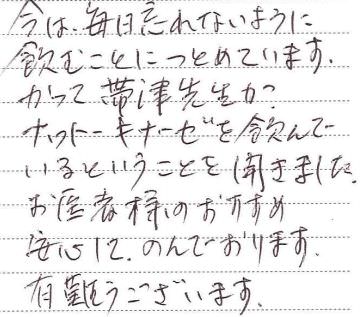 今は、毎日忘れないように
飲むことにつとめています。
かつて帯津先生が?
ナットーキナーゼを飲んで
いるということを聞きました。
お医者様のおすすめ
安心して、のんでおります。
有難うございます。